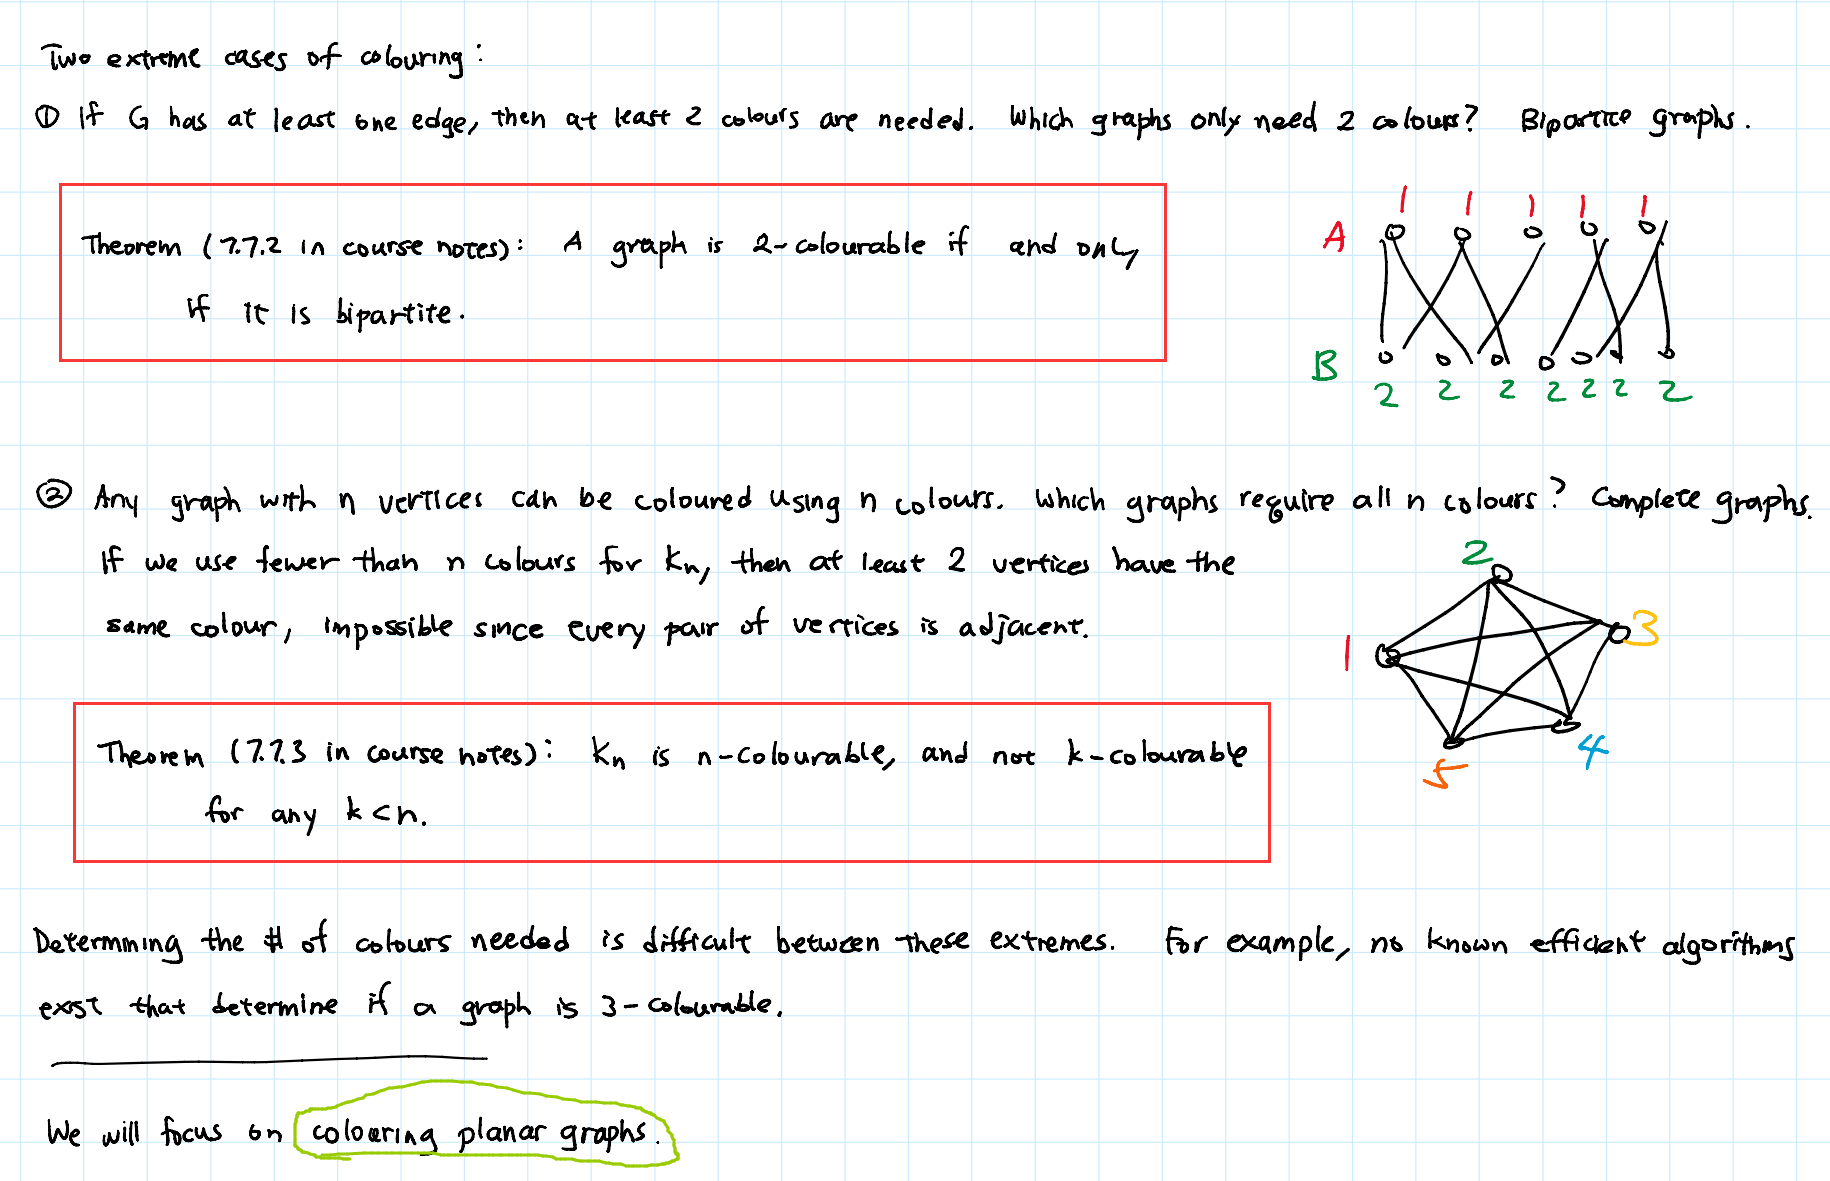 Two extreme cases of colouring:
① If G has at least one edge, then at least 2 colours are needed. Which graphs only need 2 colours? Bipartite graphs.
Theorem (7.7.2 in course notes): A graph is 2-colourable if and only
if it is bipartite.
1 1 1 1 1
A
B
2 2 2 2 2 2 2
② Any graph with n vertices can be coloured using n colours. Which graphs require all n colours? Complete graphs.
If we use fewer than n colours for Kn, then at least 2 vertices have the
same colour, impossible since every pair of vertices is adjacent.
2
3
1
4
5
Theorem (7.7.3 in course notes): Kn is n-colourable, and not k-colourable
for any k<n.
Determining the # of colours needed is difficult between these extremes. For example, no known efficient algorithms
exist that determine if a graph is 3-colourable.
We will focus on colouring planar graphs.